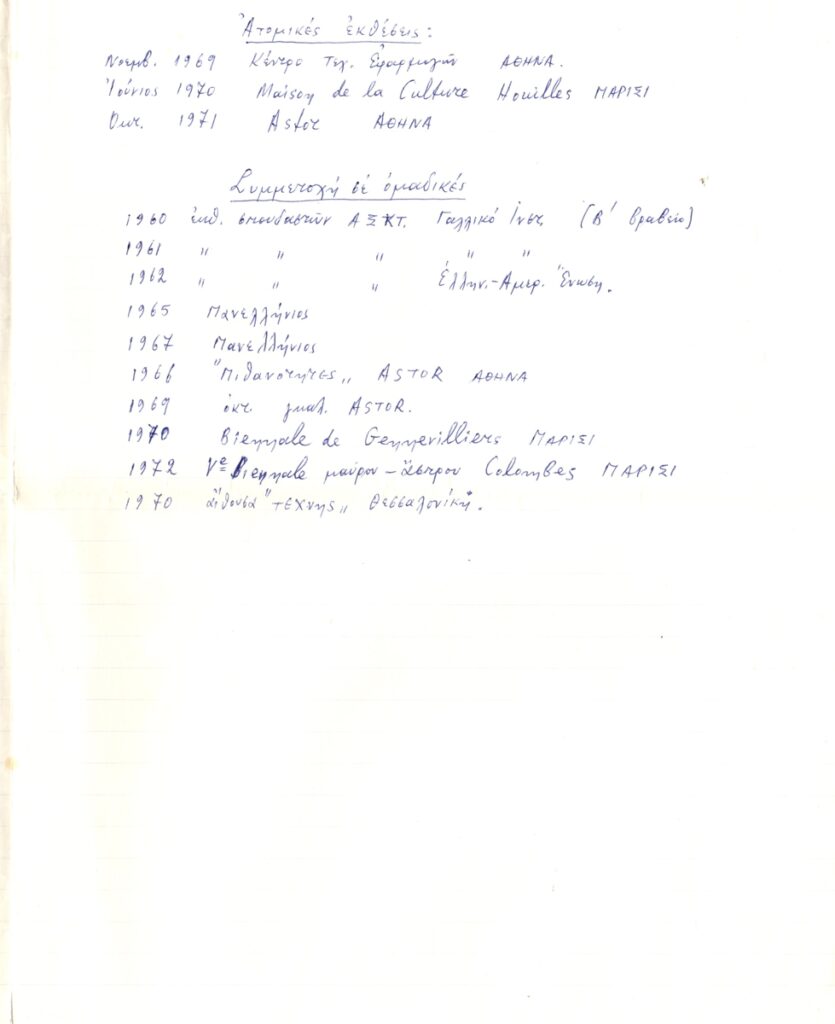 Ἀτομικές ἐκθέσεις:
Νοεμβ. 1969 Κέντρο Τεχ. Ἐφαρμογῶν ΑΘΗΝΑ.
Ἰούνιος 1970 Maison de la Culture Houilles ΠΑΡΙΣΙ
Οκτ. 1971 Astor ΑΘΗΝΑ
Συμμετοχή σέ ὁμαδικές
1960 ἐκθ. σπουδαστῶν ΑΣΚΤ. Γαλλικό Ἰνστ. (Β' βραβείο)
1961 " " " " "
1962 " " " Ἑλλην.-Αμερ. Ἕνωση.
1965 Πανελλήνιος
1967 Πανελλήνιος
1966 "Πιθανότητες" ASTOR ΑΘΗΝΑ
1969 ὀκτ. γκαλ. ASTOR.
1970 Biennale de Gennevilliers ΠΑΡΙΣΙ
1972 Ve Biennale μαύρου-ἄσπρου Colombes ΠΑΡΙΣΙ
1970 αἴθουσα "ΤΕΧΝΗΣ" Θεσσαλονίκη.